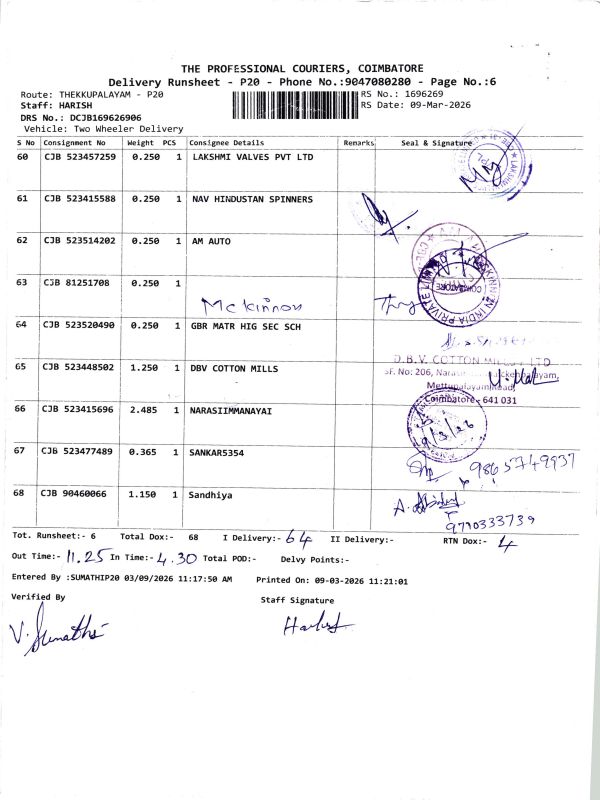 THE PROFESSIONAL COURIERS, COIMBATORE
Delivery Runsheet - P20 - Phone No.:9047080280 - Page No.:6
Route: THEKKUPALAYAM - P20 RS No.: 1696269
Staff: HARISH RS Date: 09-Mar-2026
DRS No.: DCJB169626906
Vehicle: Two Wheeler Delivery
S No Consignment No Weight PCS Consignee Details Remarks Seal & Signature
60 CJB 523457259 0.250 1 LAKSHMI VALVES PVT LTD
61 CJB 523415588 0.250 1 NAV HINDUSTAN SPINNERS
62 CJB 523514202 0.250 1 AM AUTO
63 CJB 81251708 0.250 1
Mckinnon
64 CJB 523520490 0.250 1 GBR MATR HIG SEC SCH
D.B.V. COTTON MILLS LTD
65 CJB 523448502 1.250 1 DBV COTTON MILLS
SF. No: 206,
Coimbatore - 641 031
66 CJB 523415696 2.485 1 NARASIIMMANAYAI
9/3/26
67 CJB 523477489 0.365 1 SANKAR5354
9865749937
68 CJB 90460066 1.150 1 Sandhiya
9790333739
Tot. Runsheet:- 6 Total Dox:- 68 I Delivery:- 64 II Delivery:- RTN Dox:- 4
Out Time:- 11.25 In Time:- 4.30 Total POD:- Delvy Points:-
Entered By :SUMATHIP20 03/09/2026 11:17:50 AM Printed On: 09-03-2026 11:21:01
Verified By Staff Signature
V. Sumathi Harish